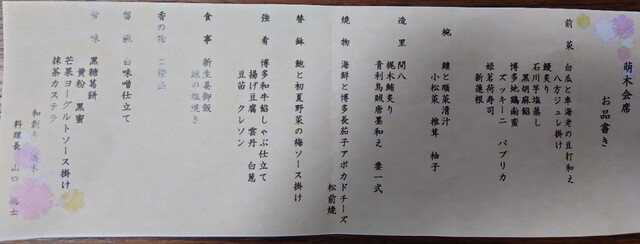 萌木会席
お品書き
前菜 白瓜と車海老の豆打和え
八方ジュレ掛け
鰻炙り ズッキーニ パプリカ
石川芋塩蒸し
黒胡麻餡
博多地鶏南蛮
姫茗荷寿司
新蓮根
椀 鱧と順菜清汁
小松菜 椎茸 柚子
造里 間八
梶木鮪炙り 妻一式
青利烏賊唐墨和え
焼物 海鮮と博多長茄子アボカドチーズ
松前焼
替鉢 鮑と初夏野菜の梅ソース掛け
強肴 博多和牛餡しゃぶ仕立て
揚げ豆腐 雲丹 白葱
豆苗 クレソン
食事 新生姜御飯
鱧の塩焼き
香の物
留椀 白味噌仕立て
甘味 黒糖葛餅
黄粉 黒蜜
芒果ヨーグルトソース掛け
抹茶カステラ
料理長 山口